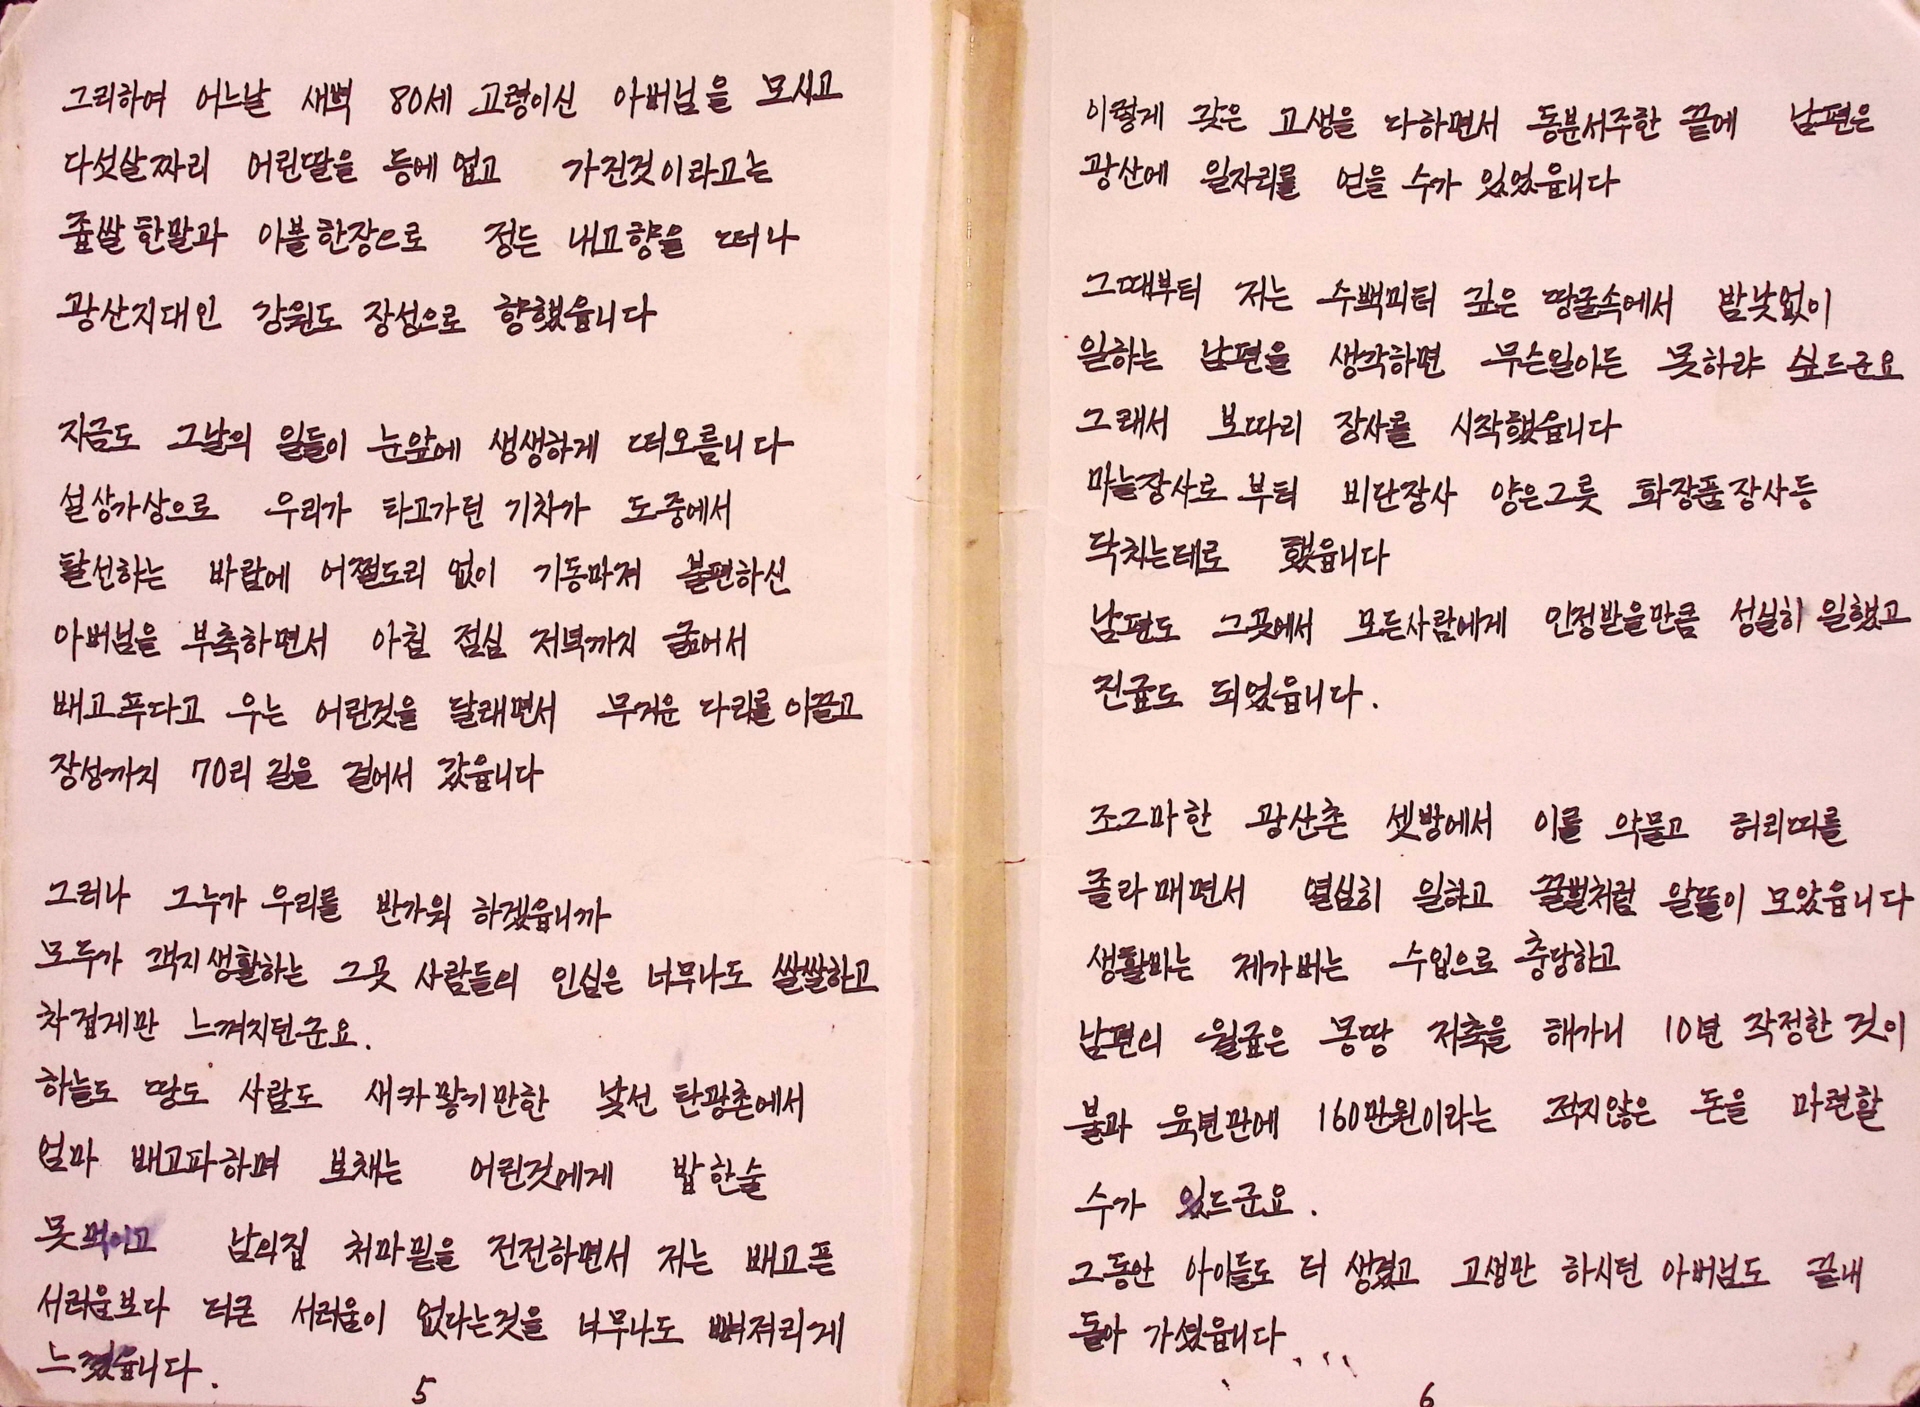 그리하여 어느날 새벽 80세 고령이신 아버님을 모시고
다섯살짜리 어린딸을 등에 업고 가진것이라고는
좁쌀 한말과 이불 한장으로 정든 내고향을 떠나
광산지대인 강원도 장성으로 향했읍니다
지금도 그날의 일들이 눈앞에 생생하게 떠오릅니다
설상가상으로 우리가 타고가던 기차가 도중에서
탈선하는 바람에 어쩔도리 없이 기동마저 불편하신
아버님을 부축하면서 아침 점심 저녁까지 굶어서
배고푸다고 우는 어린것을 달래면서 무거운 다리를 이끌고
장성까지 70리 길을 걸어서 갔읍니다
그러나 그누가 우리를 반가워 하겠읍니까
모두가 객지생활하는 그곳 사람들의 인심은 너무나도 쌀쌀하고
차겁게만 느껴지던군요.
하늘도 땅도 사람도 새카맣기만한 낯선 탄광촌에서
엄마 배고파하며 보채는 어린것에게 밥한술
못먹이고 남의집 처마밑을 전전하면서 저는 배고픈
서러움보다 더큰 서러움이 없다는것을 너무나도 뼈저리게
느꼈읍니다.
5
이렇게 갖은 고생을 다하면서 동분서주한 끝에 남편은
광산에 일자리를 얻을 수가 있었읍니다
그때부터 저는 수백미터 깊은 땅굴속에서 밤낮없이
일하는 남편을 생각하면 무슨일아든 못하랴 싶드군요
그래서 보따리 장사를 시작했읍니다
마늘장사로 부터 비단장사 양은그릇 화장품장사등
닥치는테로 했읍니다
남편도 그곳에서 모든사람에게 인정받을만큼 성실히 일했고
진급도 되었읍니다.
조그마한 광산촌 셋방에서 이를 악물고 허리띠를
졸라매면서 열심히 일하고 꿀벌처럼 알뜰이 모았읍니다
생활비는 제가버는 수입으로 충당하고
남편의 월급은 몽땅 저축을 해가니 10년 작정한 것이
불과 육년만에 160만원이라는 적지않은 돈을 마련할
수가 있드군요.
그동안 아이들도 더 생겼고 고생만 하시던 아버님도 끝내
돌아 가셨읍니다....
6